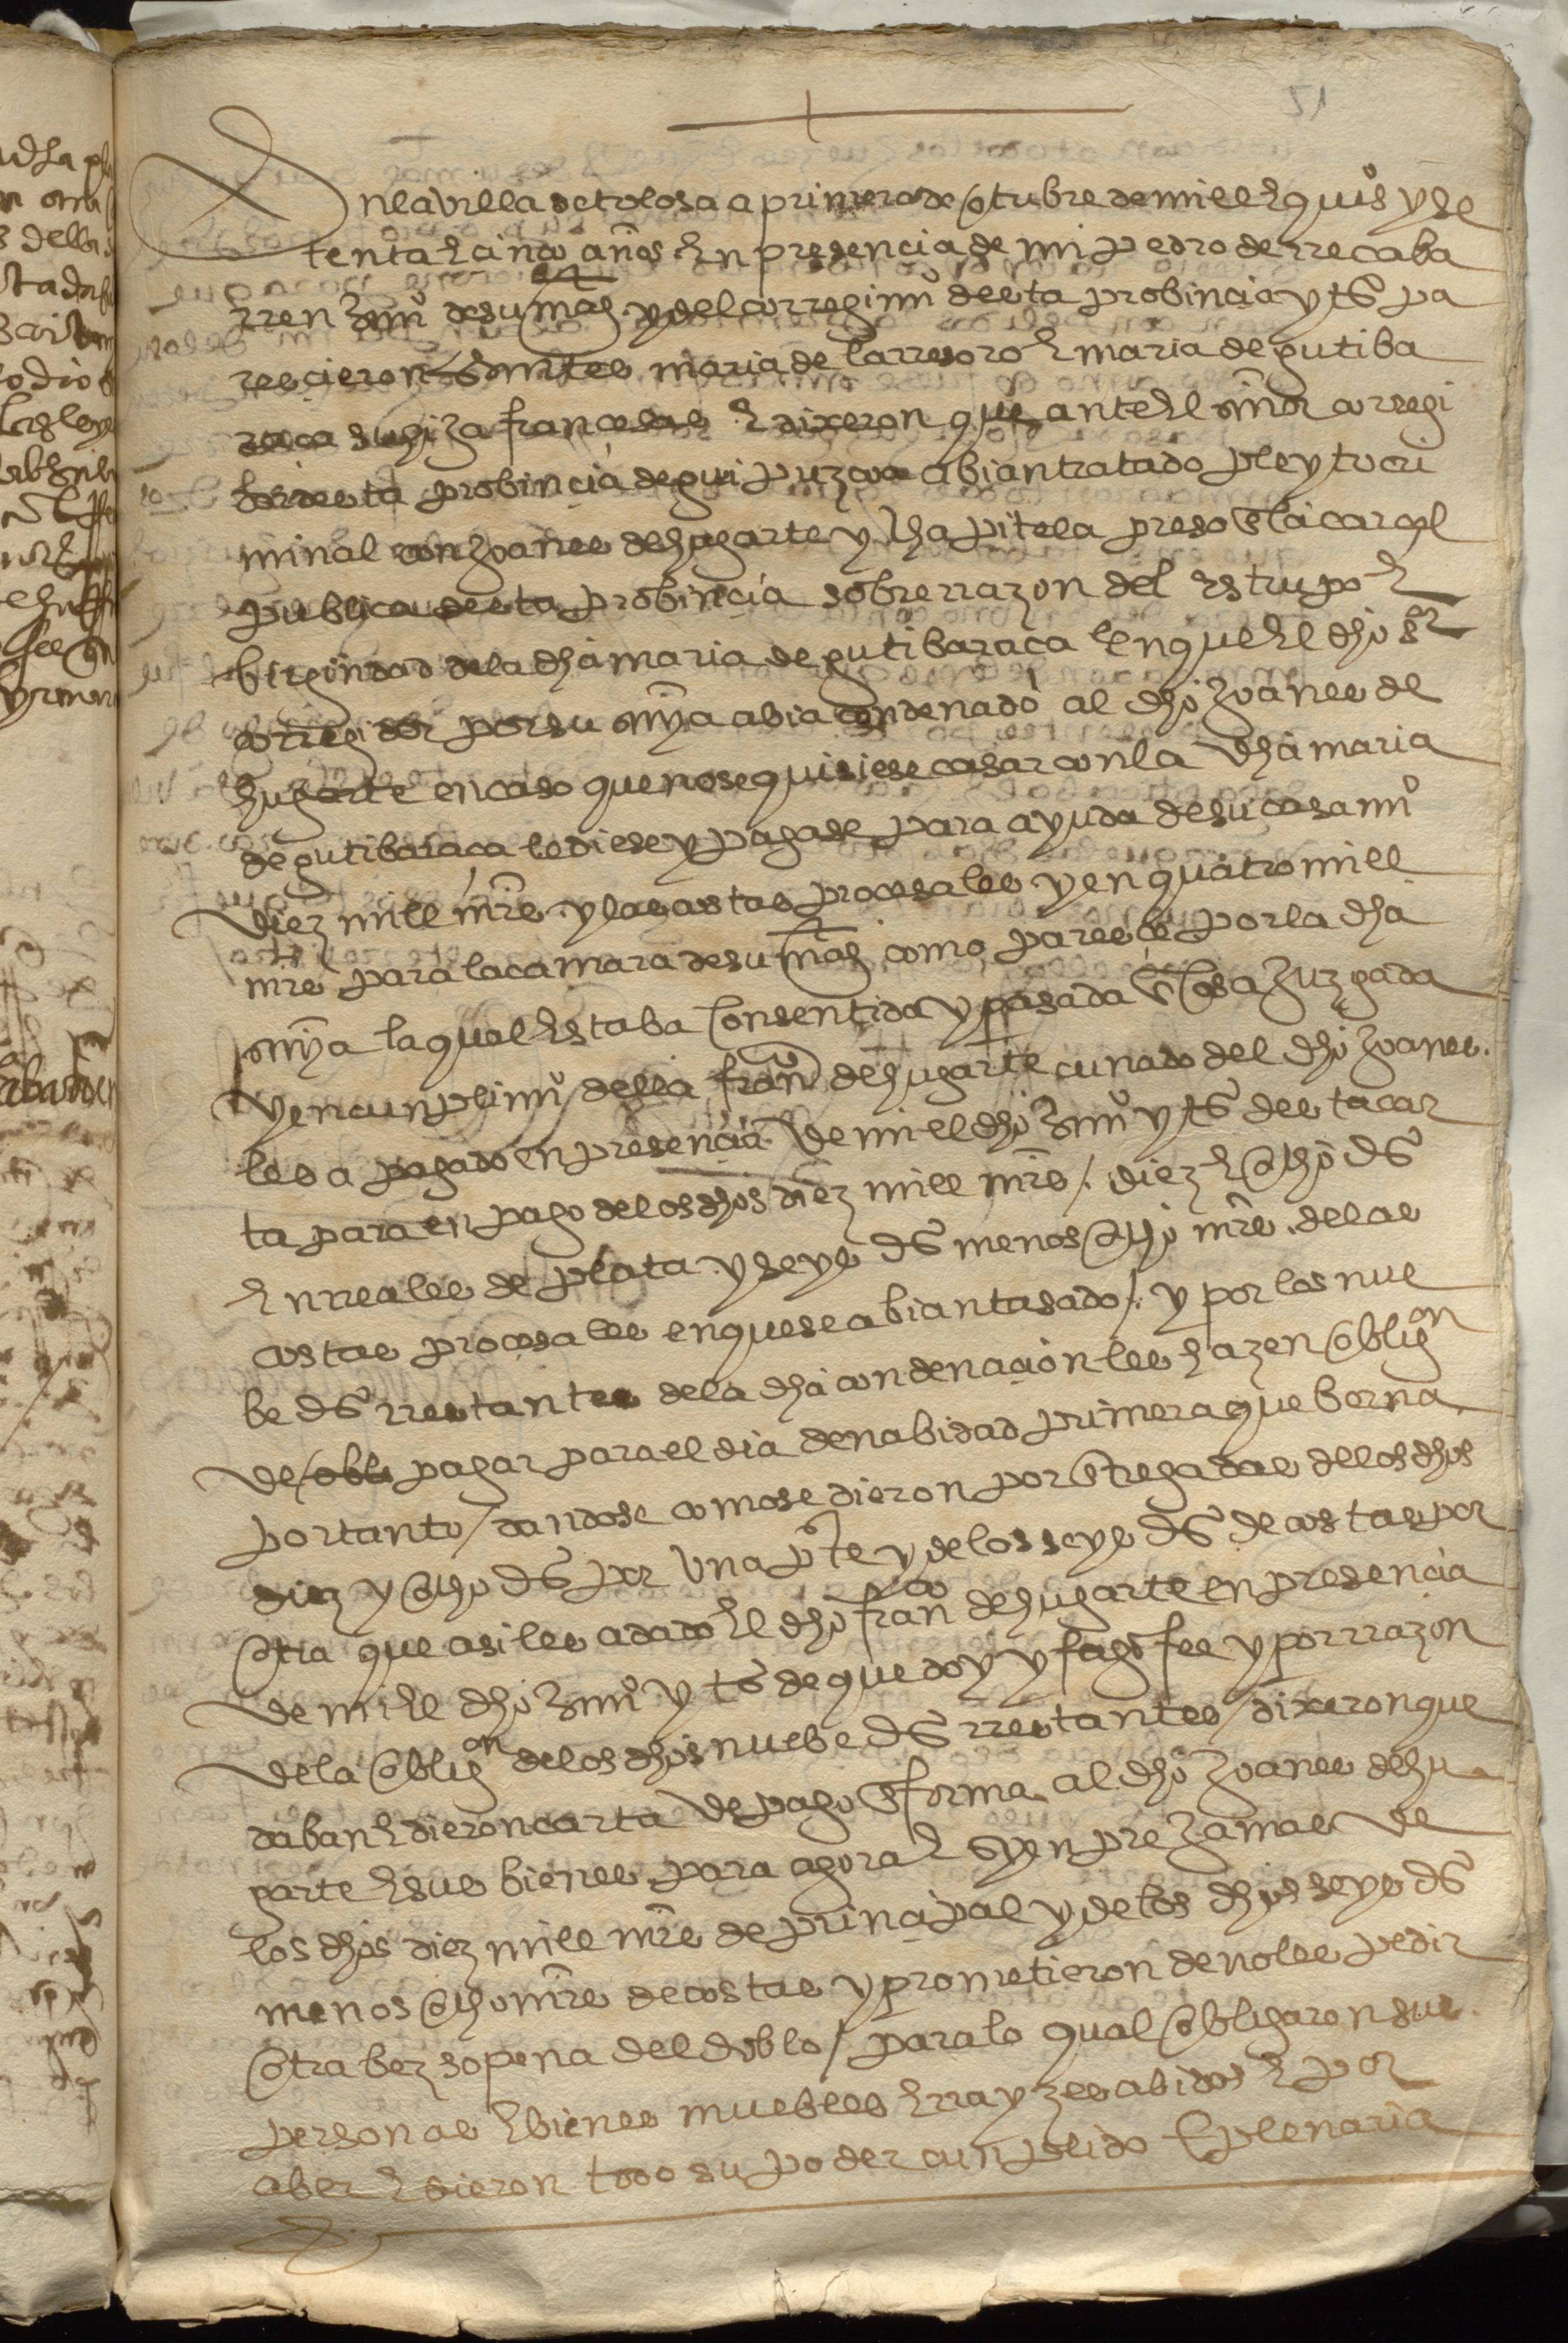 51
En la villa de tolosa a primero de otubre de mill e quios y se
tenta e cinco años En presencia de mi pedro de rrecaba
rren scriuo de su mag. y del corregimio desta probincia y tos pa
rescieron presentes maria de larresoro E maria de gutiba
raca su hija francesas E dixeron que ante El señor corregi
dor desta probincia de guipuzcoa abian tratado pleyto cri
minal con Joanes de hugarte y lhapitela preso En la carcel
publica desta probincia sobre rrazon del Estrupo E
birginidad de la dha maria de gutibaraca En que El dho sor
corregidor por su sna abia condenado al dho Joanes de
hugarte en caso que no se quisiese casar con la dha maria
de gutibaraca le diese y pagase para ayuda de su casamio
diez mill mrs y las costas procesales y en quatro mill
mrs para la camara de su mag. como paresce por la dha
sna la qual Estaba consentida y pasada En cosa Juzgada
y en cunplimio della frano de hugarte cunado del dho Joanes
les a pagado en presencia de mi el dho scriuo y tos desta car
ta para en pago de los dhos diez mill mrs / diez E ocho ds
En rreales de plata y seys ds menos ocho mrs de las
costas procesales en que se abian tasado / y por los nue
be ds rrestantes de la dha condenacion les hazen obligon
de obli pagar para el dia de nabidad primera que berna
por tanto / dandose como se dieron por Entregadas de los dhos
diez y ocho ds por una pte y de los seys ds de costas por
otra que asi les a dado El dho franco de hugarte en presencia
de mi El dho scriuo y tos de que doy y fago fee y por rrazon
de la obligon de los dhos nuebe ds rrestantes / dixeron que
daban E dieron carta de pago En forma al dho Joanes de hu
garte E sus bienes para agora E syenpre Jamas de
los dhos diez mill mrs de principal y de los dhos seys ds
menos ocho mrs de costas y prometieron de no les pedir
otra bez so pena del doblo / para lo qual obligaron sus
personas E bienes muebles E rrayzes abidos E por
aber E dieron todo su poder cunplido E plenaria